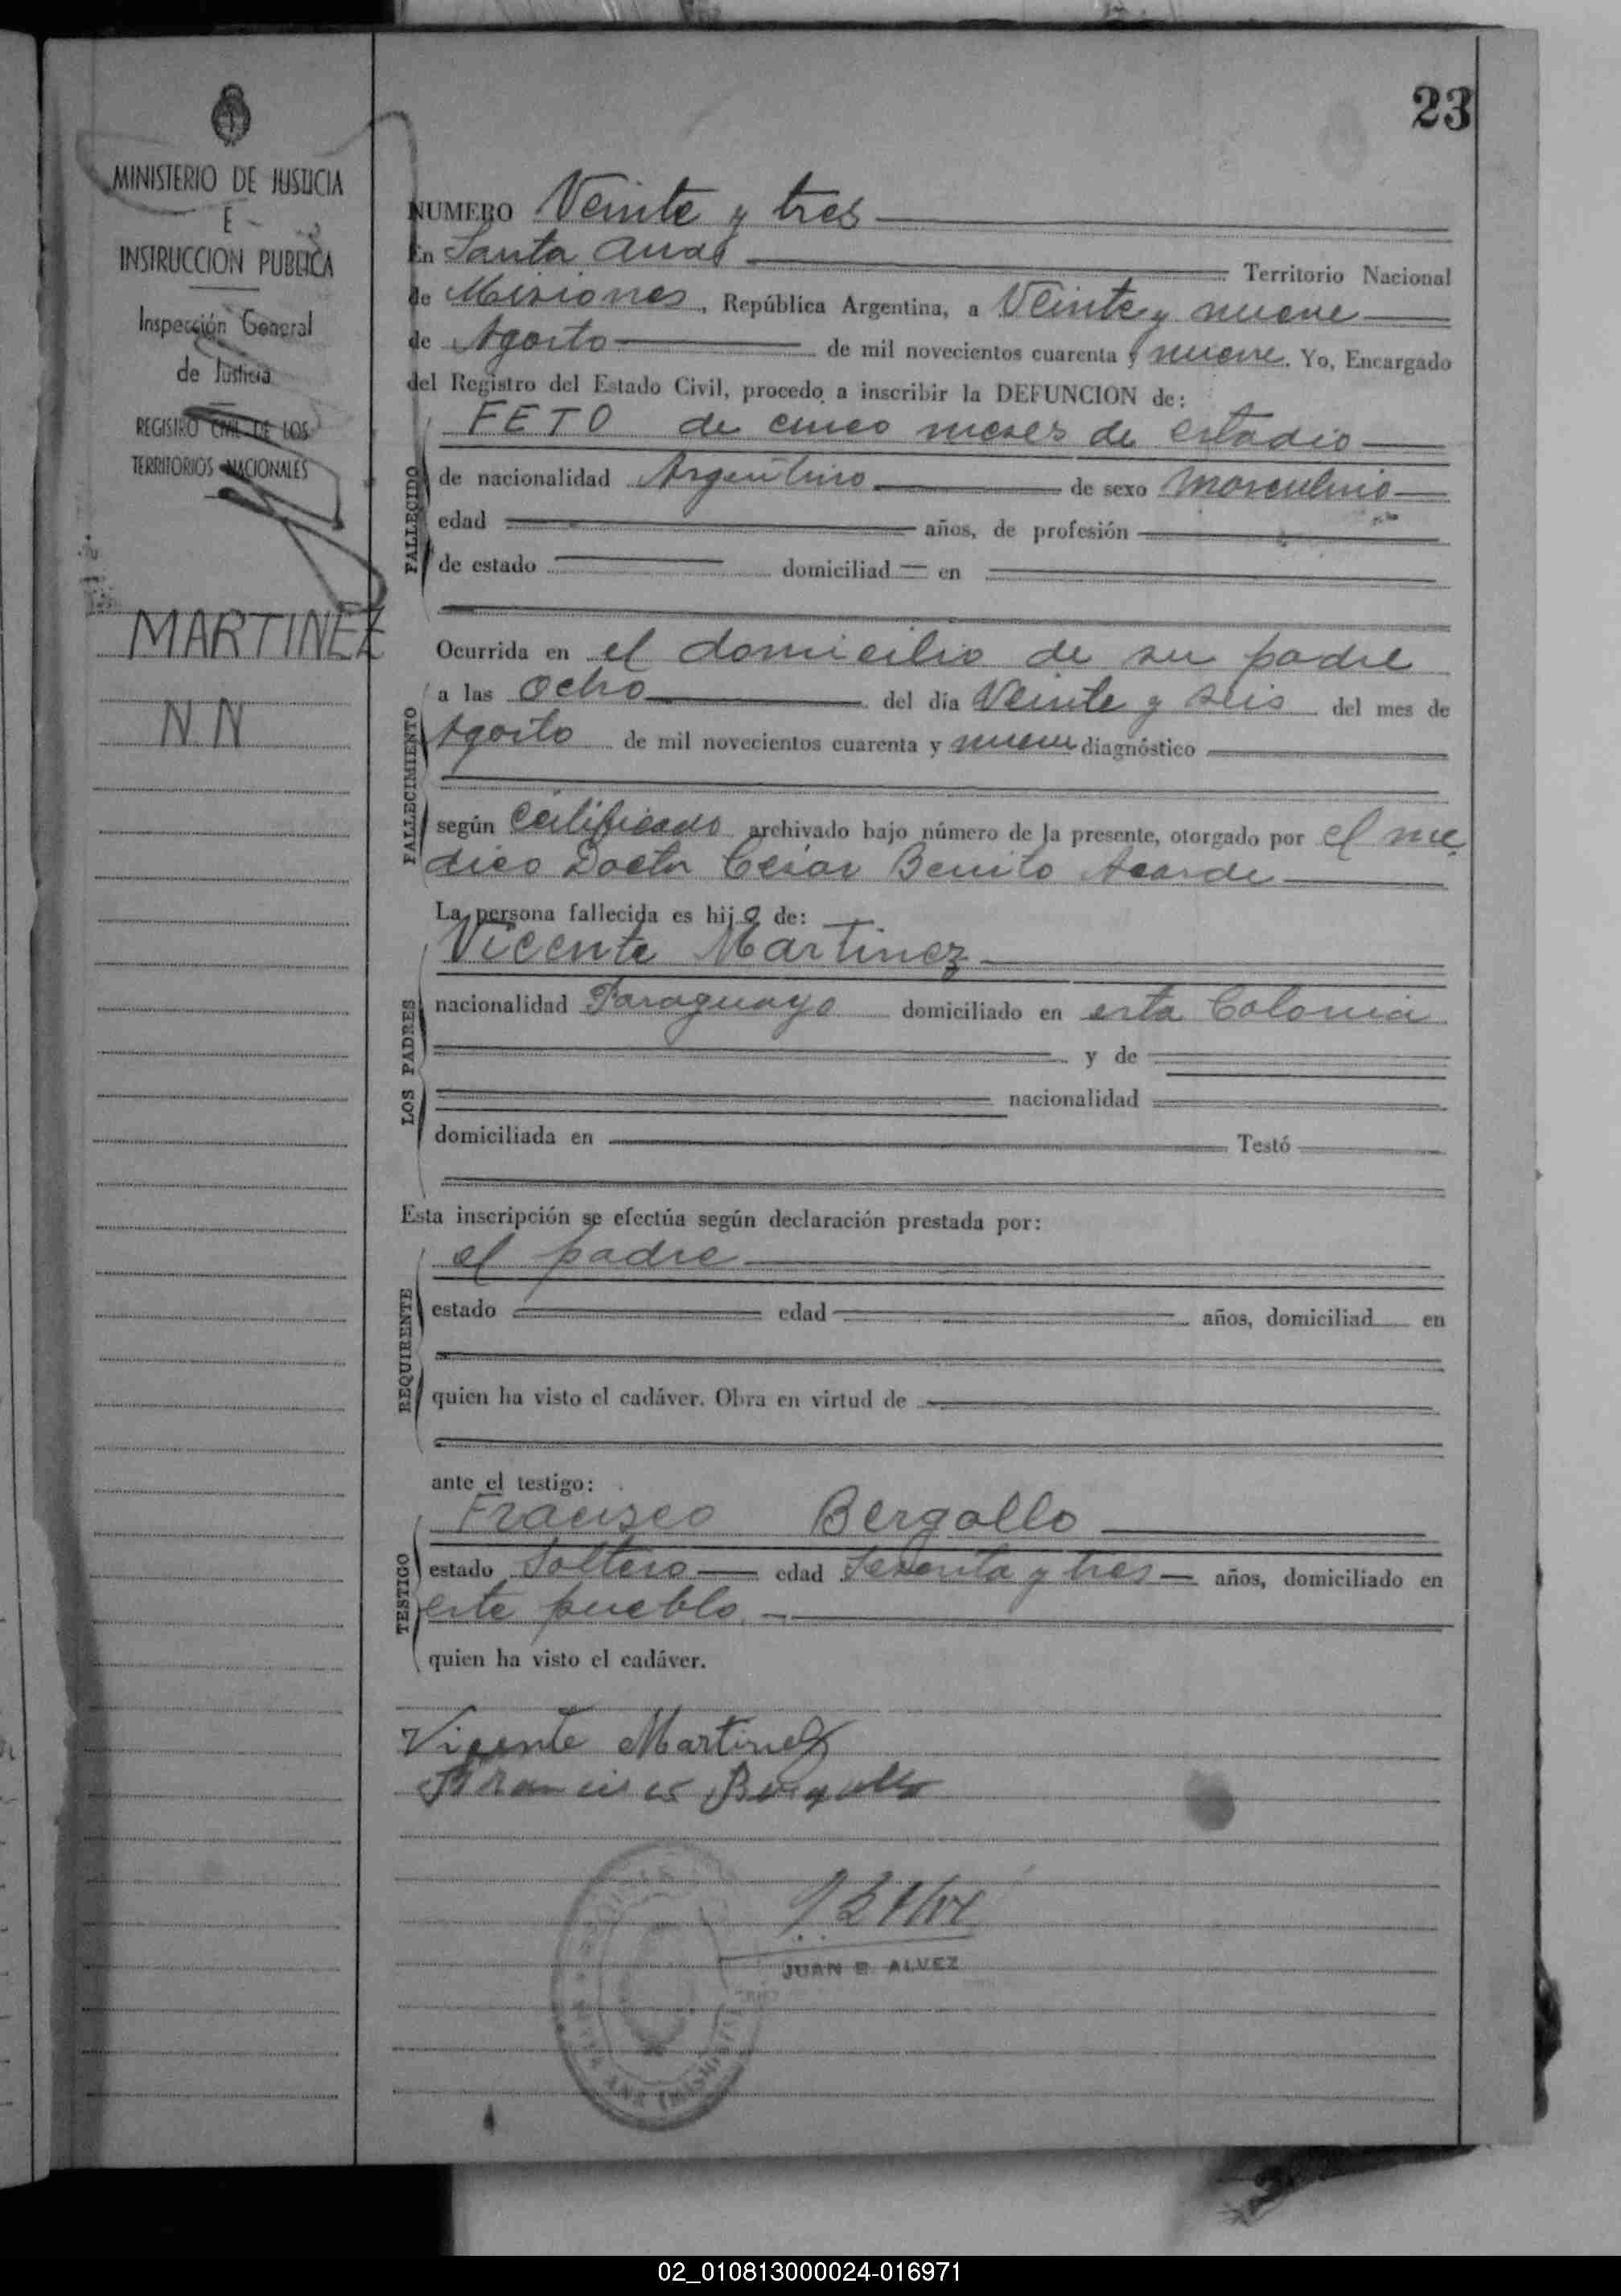 23
MINISTERIO DE JUSTICIA
E
INSTRUCCION PUBLICA
Inspección General
de Justicia
REGISTRO CIVIL DE LOS
TERRITORIOS NACIONALES
MARTINEZ
N.N
NUMERO Veinte y tres
En Santa Anas Territorio Nacional
de Misiones, República Argentina, a Veinte y nueve
de Agosto de mil novecientos cuarenta y nueve. Yo, Encargado
del Registro del Estado Civil, procedo a inscribir la DEFUNCION de:
FETO de cinco meses de estadio
FALLECIDO
de nacionalidad Argentino de sexo masculino
edad años, de profesión
de estado domiciliad en
Ocurrida en el domicilio de su padre
FALLECIMIENTO
a las ocho del día Veinte y seis del mes de
Agosto de mil novecientos cuarenta y nueve diagnóstico
según certificado archivado bajo número de la presente, otorgado por el me
dico Doctor Cesar Benito
La persona fallecida es hijo de:
LOS PADRES
Vicente Martinez
nacionalidad Paraguayo domiciliado en esta Colonia
y de
nacionalidad
domiciliada en Testó
Esta inscripción se efectúa según declaración prestada por:
REQUIRENTE
el padre
estado edad años, domiciliad en
quien ha visto el cadáver. Obra en virtud de
ante el testigo:
TESTIGO
Fracisco Bergallo
estado Soltero edad Sesenta y tres años, domiciliado en
este pueblo
quien ha visto el cadáver.
Vicente Martinez
Francisco Bergallo
JUAN B. ALVEZ
02_010813000024-016971